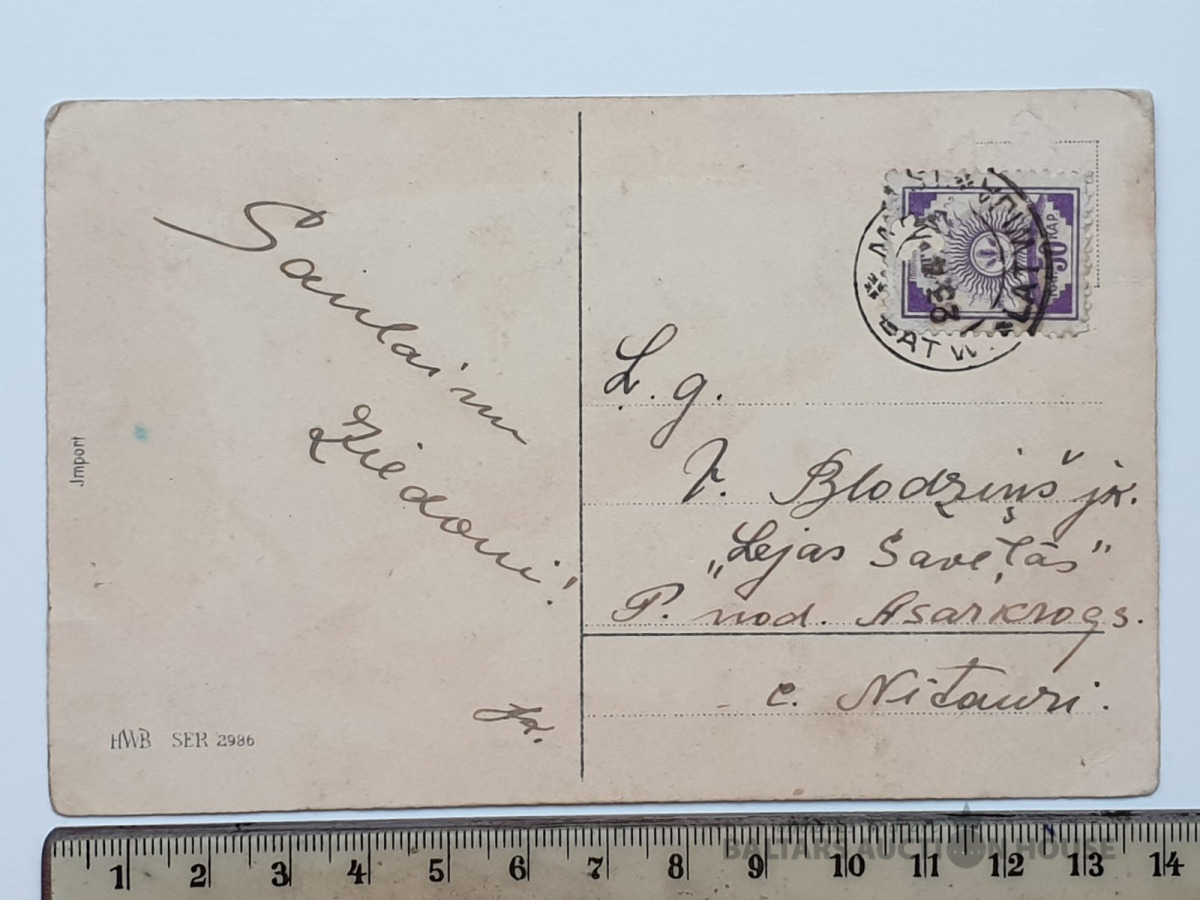 Saulainu
Ziedoni!
Jmport
HWB SER 2986
L. g.
Blodziņš jr.
„Lejas Saveļās"
P. nod. Asarkrogs.
c. Nītauri.
LATW.
LAT
50 KAP
1 2 3 4 5 6 7 8 9 10 11 12 13 14
BALTARS AUCTION HOUSE